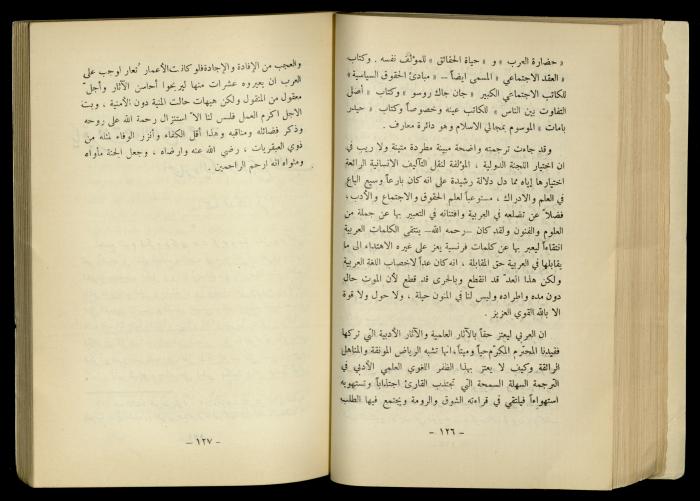 « حضارة العرب » و « حياة الحقائق » للمؤلف نفسه . وكتاب
« العقد الاجتماعي » المسمى ايضاً – « مبادئ الحقوق السياسية »
للكاتب الاجتماعي الكبير « جان جاك روسو » وكتاب « أصل
التفاوت بين الناس » للكاتب عينه وخصوصاً وكتاب « حيدر
بامات » الموسوم بمجالي الاسلام وهو دائرة معارف .
وقد جاءت ترجمته واضحة مبينة مطردة متينة ولا ريب في
ان اختيار اللجنة الدولية ، المؤلفة لنقل التآليف الانسانية الرائعة
اختارها إياه مما دل دلالة رشيدة على انه كان بارعاً وسيع الباع
في العلم والادراك ، مستوعباً لعلم الحقوق والاجتماع والأدب ،
فضلاً عن تضلعه في العربية وافتنانه في التعبير بها عن جملة من
العلوم والفنون ولقد كان – رحمه الله – ينتقي الكلمات العربية
انتقاءاً ليعبر بها عن كلمات فرنسية يعز على غيره الاهتداء الى ما
يقابلها في العربية حق المقابلة ، انه كان عداً لاخصاب اللغة العربية
ولكن هذا العد قد انقطع وبالحرى قد قطع لأن الموت حال
دون مده واطراده وليس لنا في المنون حيلة ، ولا حول ولا قوة
الا بالله القوي العزيز .
ان العربي ليعتز حقاً بالآثار العلمية والآثار الأدبية التي تركها
فقيدنا المحترم المكرم حياً وميتاً، انها تشبه الرياض المونقة والمناهل
الرائقة وكيف لا يعتز بهذا الظفر اللغوي العلمي الأدبي في
الترجمة السهلة السمحة التي تجتذب القارئ اجتذاباً وتستهويه
استهواءاً فيلتقي في قراءته الشوق والرومة ويجتمع فيها الطلب
– ١٢٦ –
والعجب من الإفادة والإجادة فلو كانت الأعمار تُعار لوجب على
العرب ان يعيروه عشرات منها ليربحوا أحاسن الآثار وأجلّ
معقول من المنقول ولكن هيهات حالت المنية دون الأمنية ، وبت
الاجل اكرم العمل فليس لنا الاّ استنزال رحمة الله على روحه
وذكر فضائله ومناقبه وهذا أقل الكفاء وأنزر الوفاء لمثله من
ذوي العبقريات ، رضي الله عنه وارضاه ، وجعل الجنة مأواه
ومثواه انه ارحم الراحمين .
– ١٢٧ –